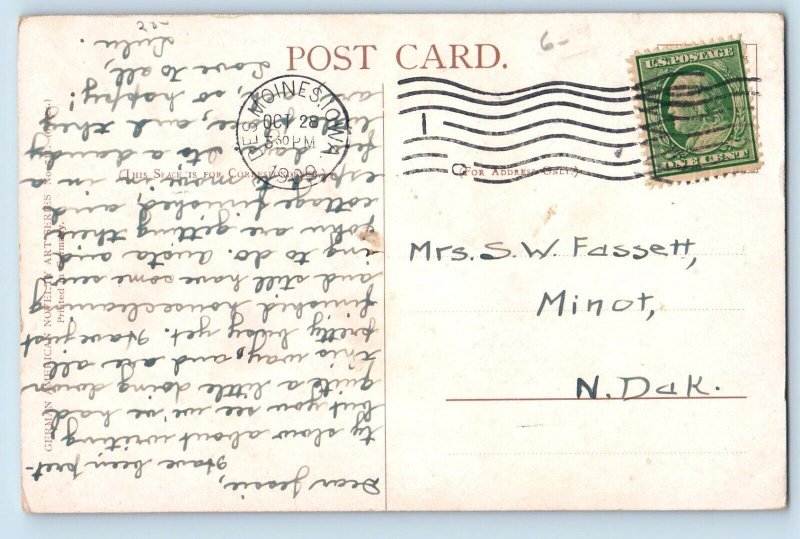 POST CARD.
U.S. POSTAGE
ONE CENT
DES MOINES, IOWA
OCT 28
5 30 PM
1
(THIS SPACE IS FOR CORRESPONDENCE.)
(FOR ADDRESS ONLY.)
Mrs. S. W. Fassett,
Minot,
N. Dak.
Dear Jessie,
Have been pret-
ty slow about writing
but you see we've had
quite a little doing down
this way, and are all
pretty busy yet. Have just
finished housecleaning
and still have some sew-
ing to do. and
John are getting their
cottage finished, and
expect to move in a
few days. to a dandy
and they
are so happy!
Love to all,
Lulu.
GERMAN AMERICAN NOVELTY ART SERIES
Printed in Germany.
6-